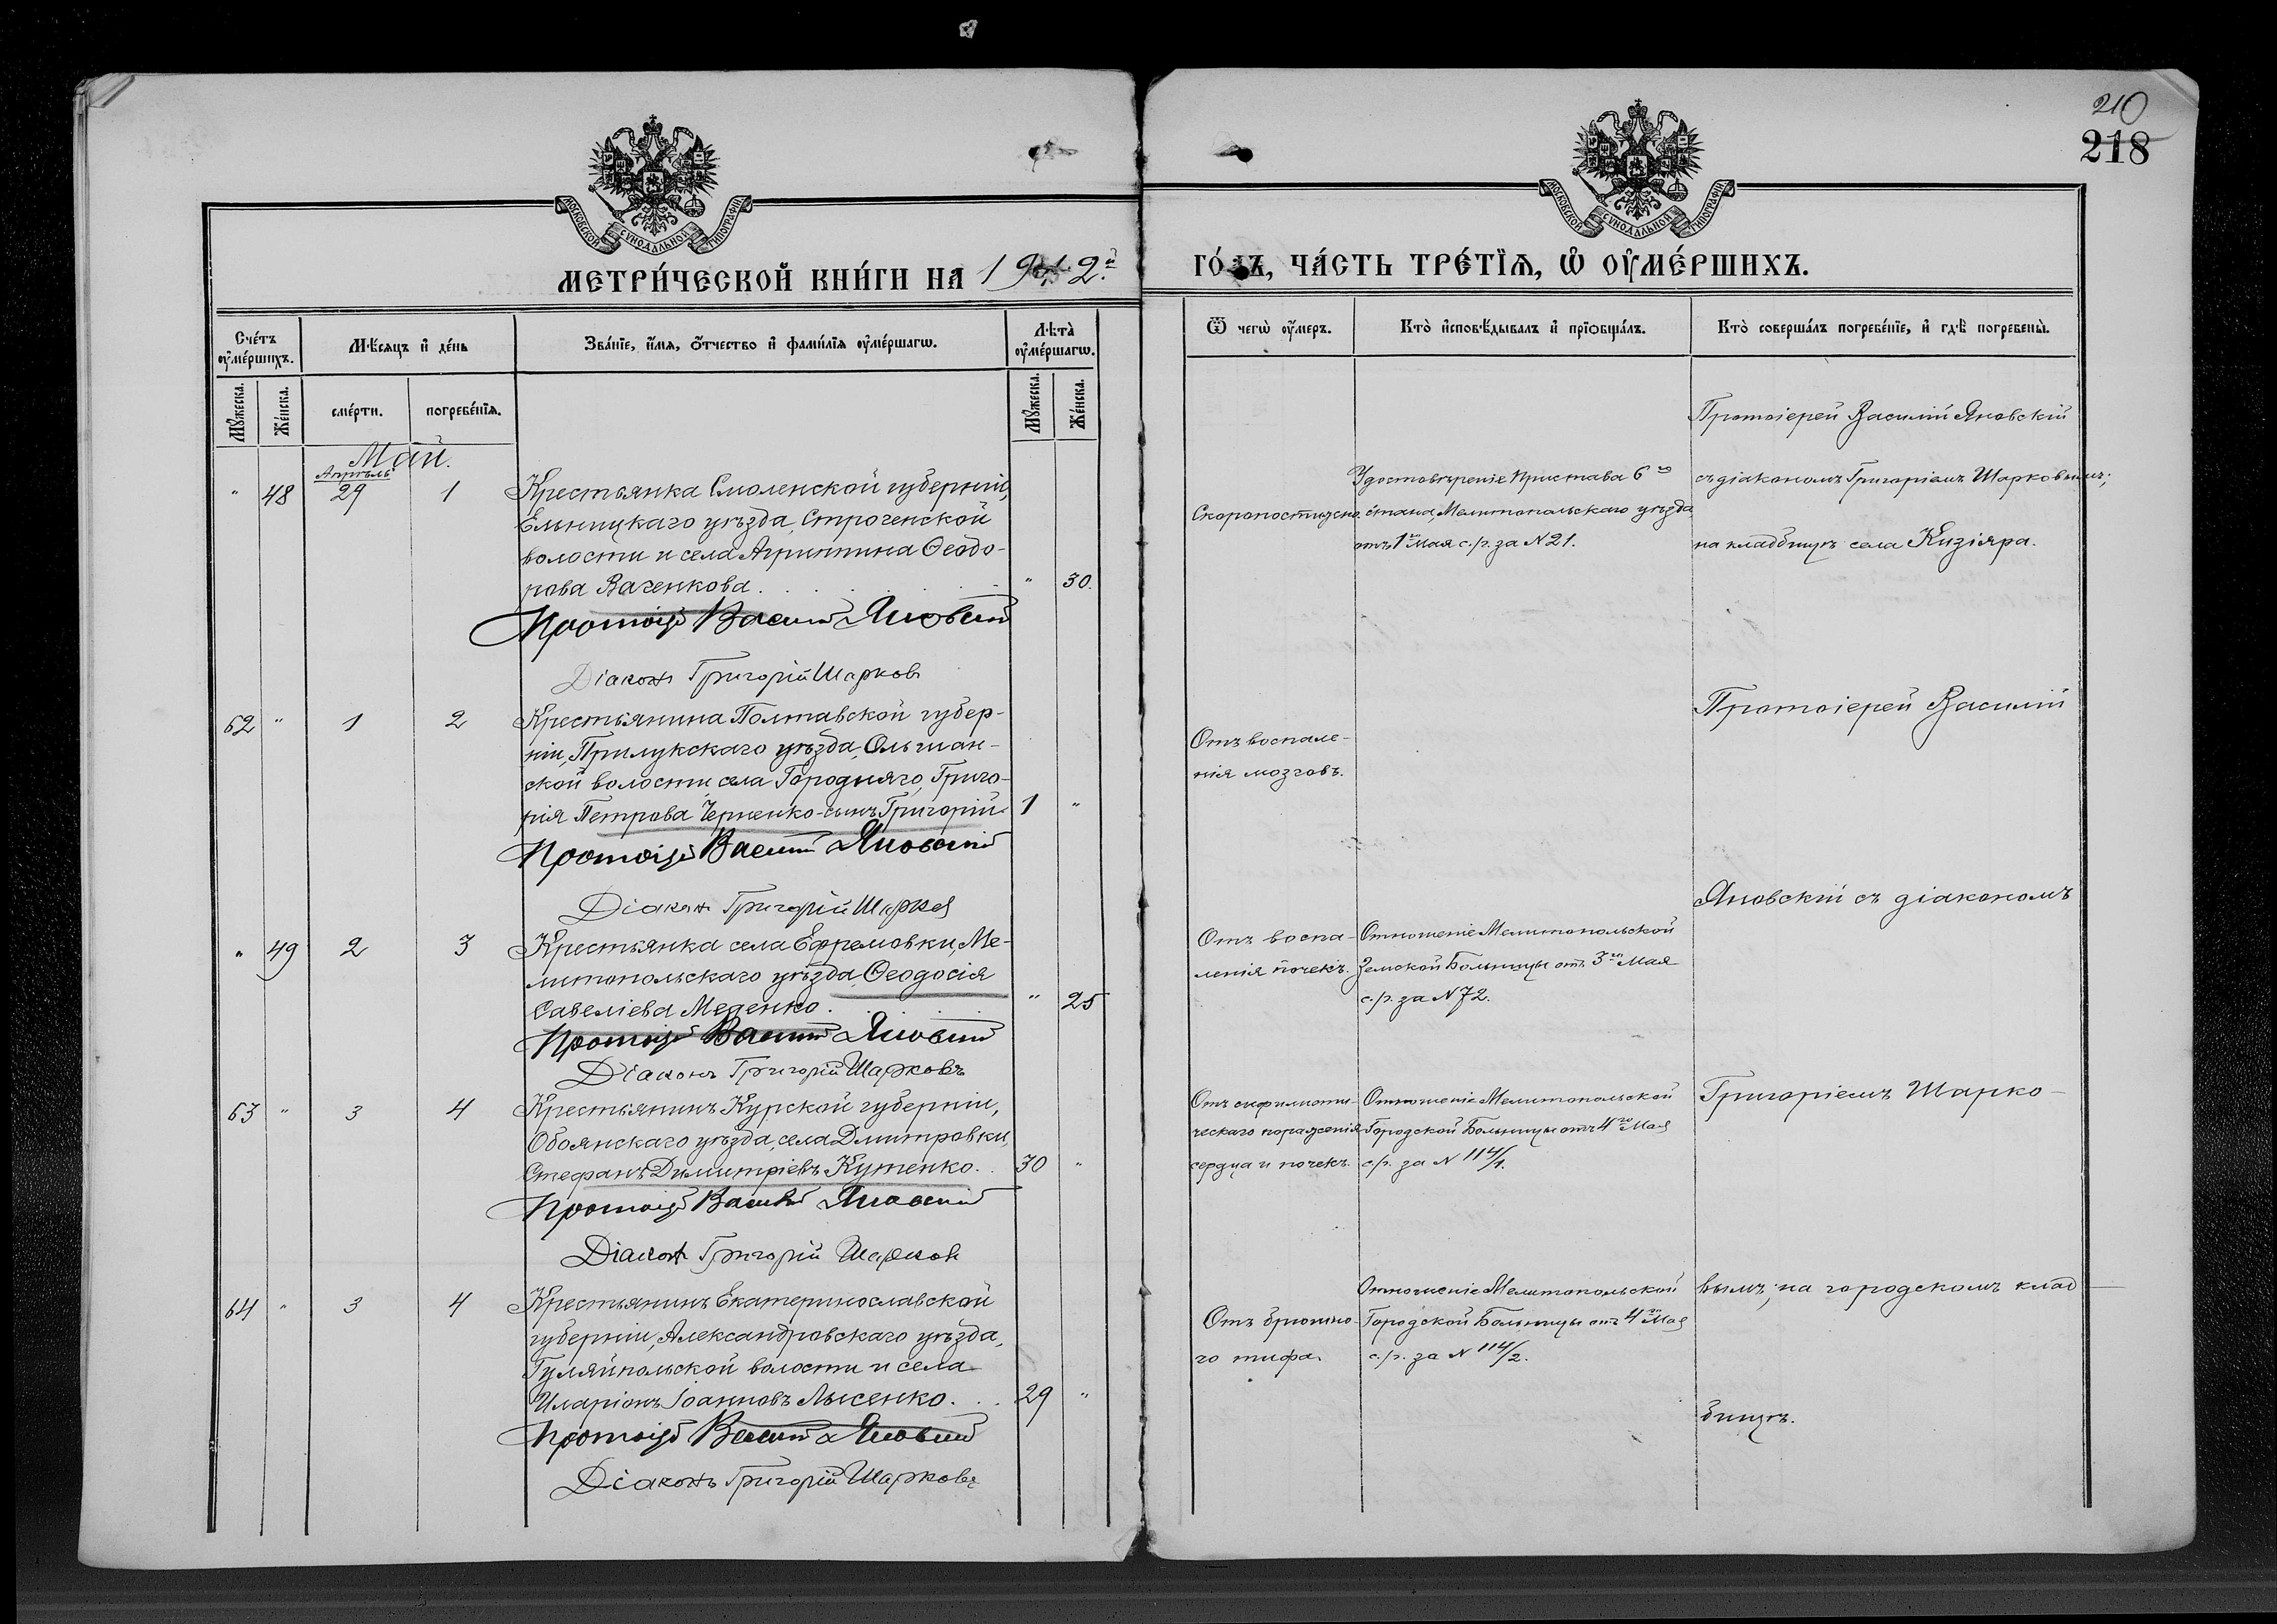 210
218
МОСКОВСКОЙ СѴНОДАЛЬНОЙ ТИПОГРАФІИ
МОСКОВСКОЙ СѴНОДАЛЬНОЙ ТИПОГРАФІИ
МЕТРИ́ЧЕСКОЙ КНИ́ГИ НА 1912й
ГО́ДЪ, ЧА́СТЬ ТРЕ́ТЇѦ, Ѽ ОУ҆МЕ́РШИХЪ.
Сче́тъ оу҆ме́ршихъ.
Мѣ́сяцъ и҆ де́нь
Зва́нїе, и҆́мѧ, ѻ҆́тчество и҆ фами́лїѧ оу҆ме́ршагѡ.
Лѣта̀ оу҆ме́ршагѡ.
Ѿ чегѡ̀ оу҆́меръ.
Кто̀ и҆сповѣ́дывалъ и҆ прїѡбща́лъ.
Кто̀ соверша́лъ погребе́нїе, и҆ гдѣ̀ погребены̀.
Мꙋ́жеска.
Же́нска.
сме́рти.
погребе́нїѧ.
Мꙋ́жеска.
Же́нска.
Май.
Апрѣль
" 48 29 1
Крестьянка Смоленской губерніи,
Ельницкаго уѣзда, Строгенской
волости и села Агриппина Ѳеодо-
рова Ваченкова. " 30.
Протоіер Василій Яновскій
Діаконъ Григорій Шарковъ
Скоропостижно.
Удостовѣреніе Пристава 6го
стана, Мелитопольскаго уѣзда
отъ 1го Мая с./г. за N 21.
Протоіерей Василій Яновскій
съ діакономъ Григоріемъ Шарковымъ;
на кладбищѣ села Кизіяра.
62 " 1 2
Крестьянина Полтавской губер-
ніи, Прилукскаго уѣзда, Ольшан-
ской волости, села Городняго, Григо-
рія Петрова Черненко-сынъ Григорій 1 "
Протоіер Василій Яновскій
Діаконъ Григорій Шарковъ
Отъ воспале-
нія мозговъ.
Протоіерей Василій
" 49 2 3
Крестьянка села Ефремовки, Ме-
литопольскаго уѣзда, Ѳеодосія
Савеліева Меденко. " 25
Протоіер Василій Яновскій
Діаконъ Григорій Шарковъ
Отъ воспа-
ленія почекъ.
Отношеніе Мелитопольской
Земской Больницы отъ 3го Мая
с./г. за N 72.
Яновскій съ діакономъ
63 " 3 4
Крестьянинъ Курской губерніи,
Обоянскаго уѣзда, села Дмитровки,
Стефанъ Димитріевъ Кутенко. 30 "
Протоіер Василій Яновскій
Діаконъ Григорій Шарковъ
Отъ сифилити-
ческаго пораженія
сердца и почекъ.
Отношеніе Мелитопольской
Городской Больницы отъ 4го Мая
с./г. за N 114/1.
Григоріемъ Шарко-
64 " 3 4
Крестьянинъ Екатеринославской
губерніи, Александровскаго уѣзда,
Гуляйпольской волости и села
Иларіонъ Іоанновъ Лысенко. 29 "
Протоіер Василій Яновскій
Діаконъ Григорій Шарковъ
Отъ брюшно-
го тифа.
Отношеніе Мелитопольской
Городской Больницы отъ 4го Мая
с./г. за N 114/2.
вымъ; на городскомъ клад-
бищѣ.